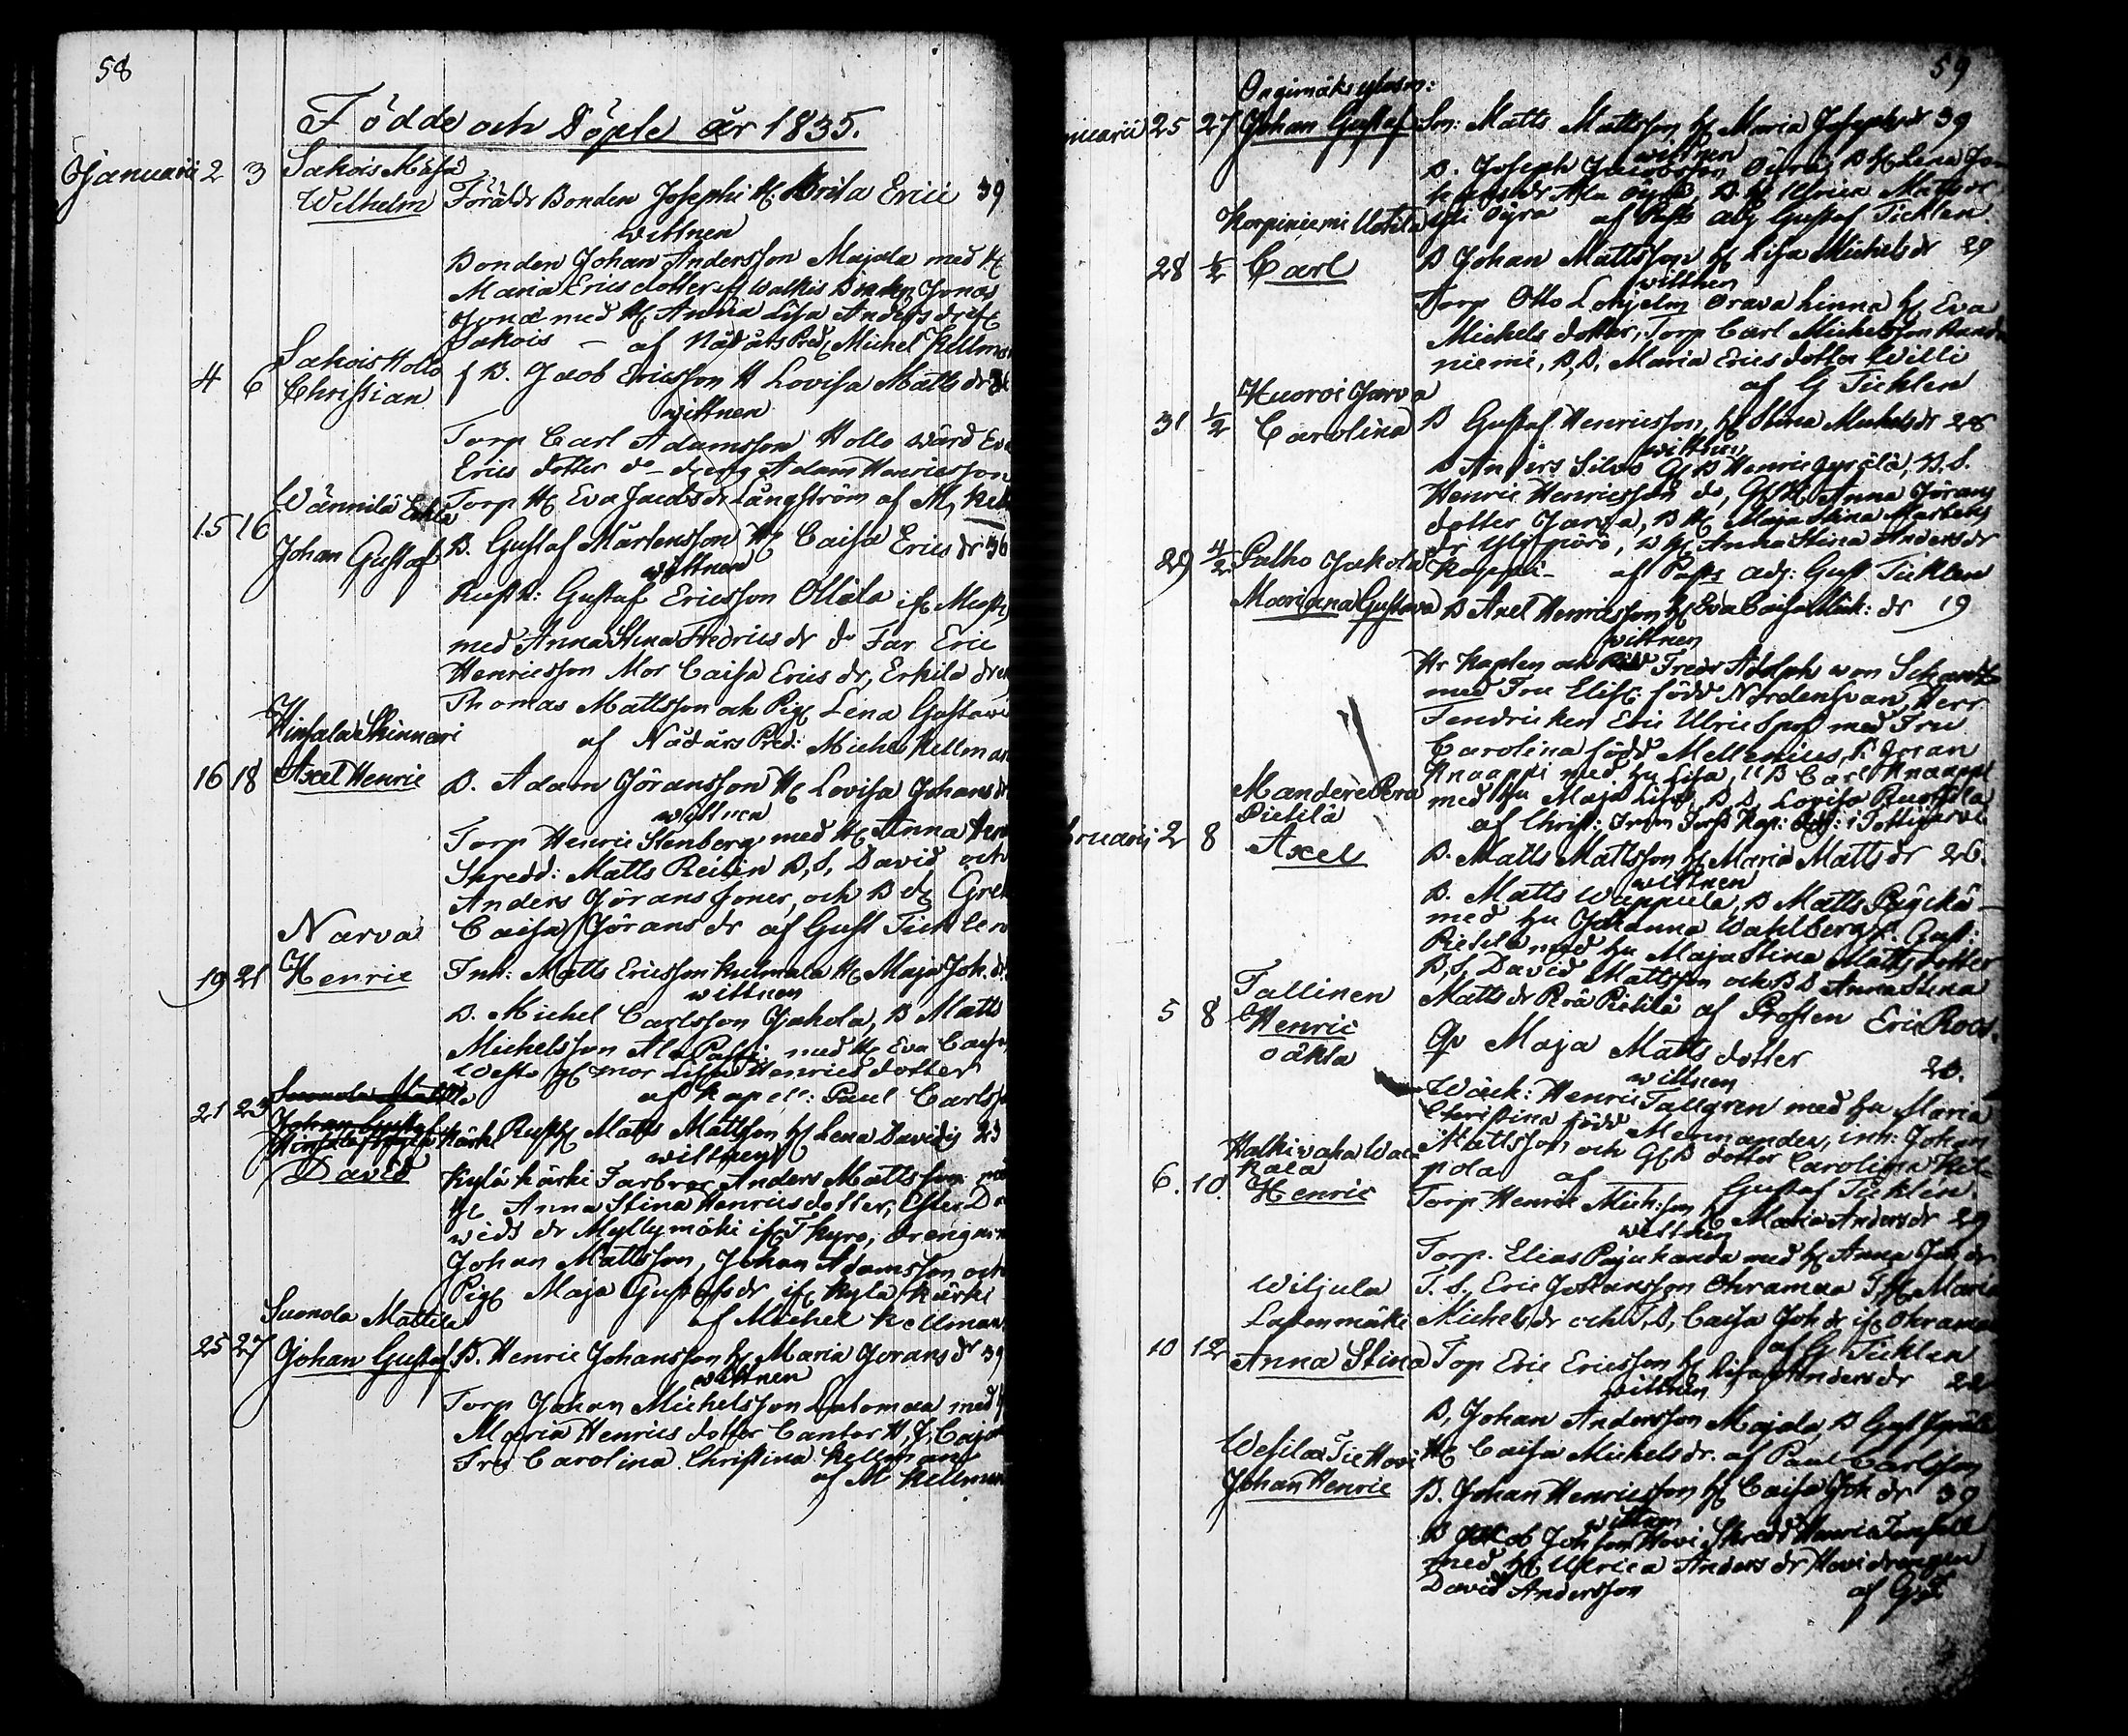 58
Födde och Döpte år 1835.
Januarii 2 3 Sakois Mäsä
Wilhelm Föräldr Bonden Josephi H Brita Erici 39
wittnen
Bonden Johan Andersson Majala med H
Maria Ericsdotter Walkis Bonden Jonas
med H Anna Lisa Andersdr
Sakois – af Nådårs Pred. Michel Kellman
4 6 Sakois Hollo
Christian B. Jacob Ericsson H Lovisa Matts dr
wittnen
Torp Carl Adamsson Hollo wärd Eva
Erics dotter do dreng Adam Henricsson
Torp H Eva Jacobs dr Långström af M, Kell
15 16 Wännilä
Johan Gustaf B. Gustaf Mårtensson H Caisa Erics dr 36
wittnen
Rusth: Gustaf Ericsson Ollila
med Anna Stina Hedrics dr do Far Eric
Henricsson Mor Caisa Erics dr, Erkila
Thomas Mattsson och Pig Lena Gustavi
af Nådårs Pred: Michel Kellman
Hinsala Skinnari
16 18 Axel Henric B. Adam Göransson H Lovisa Johans dr
wittnen
Torp Henric Stenberg med H Anna
Skredd: Matts Reilin B, S, David och
Anders Görans söner, och B d Gret
Caisa Görans dr af Gust Ticklen
Narva
19 21 Henric Inh: Matts Ericsson Kulmala H Maja Joh. dr
wittnen
B. Michel Carlsson Jakola, B Matts
Michelsson Ala med H Eva Caisa
mor Lisa Henrics dotter
af Kapell: Paul Carlsson
21 23 Suonola Mattila
Johan Gustaf
Kärki Rusth Matts Mattsson H Lena Davidis 23
wittnen
David Kylä kärki Farbror Anders Mattsson
H Anna Stina Henrics dotter, Ester Da
wids dr Myllymäki if Tkyro, drengarne
Johan Mattsson, Johan Adamsson och
Pig Maja Gustafs dr if Kylä kärki
af Michel Kellman
Suonola Mattila
25 27 Johan Gustaf B. Henric Johansson H Maria Görans dr 39
wittnen
Torp Johan Michelsson Latomaa med
Maria Henrics dotter Cantor H, J, Caj
Fru Carolina Christina Kellman
af M Kellman
59
25 27 Johan Gustaf Sn: Matts Mattsson H Maria Josephs dr 39
wittnen
B. Joseph Jacobsson Öyrä, B H Lena
Ala Öyrä, B H Ulrica Matts dr
yli Öyra af Past adj Gustaf Ticklen
Korpiniemi Uotila
28 1/2 Carl B Johan Mattsson H Lisa Michels dr 29
wittnen
Torp Otto Lohjelm Orava linna H Eva
Michels dotter, Torp Carl Michelsson
niemi, B, D, Maria Erics dotter Willi
af G Ticklen
Huoroi Jarva
31 1/2 Carolina B Gustaf Henricsson, H Stina Michels dr 28
wittnen
Anders Silvo B Henric B. S.
Henric Henricsson do, Anna Jörans
dotter Jarva, B H Maja Stina Mårtens
dr H Anna Stina Anders dr
af Past adj: Gust Ticklen
29 4/2 Palho Jakola
Mariana Gustava B Axel Henricsson H Eva Caisa dr 19
wittnen
Hr Kapten och Fredr Adolph von Schantz
med Fru Elis: född Nordensvan, Herr
Fendricken Eric Ulric med Fru
Carolina född Mellenius, Göran
Knaappi med hu Lisa, B Carl Knaappi
med hu Maja Lisa, B, D, Lovisa
af Christ:
Mandere Perä
Pietilä
2 8 Axel B. Matts Mattsson H Maria Matts dr 26.
wittnen
B. Matts Wappula, B Matts
med hu Johanna Wahlberg, Gust:
med hu Maja Stina Matts dotter
B, S, David Mattsson och B D Anna Stina
Matts dr Perä Pietilä af Prosten Eric Roos.
Tallinen
5 8 Henric
oäkta Qp Maja Matts dotter 20.
wittnen
Henric Tallgren med hu Maria
Christina född Mennander, inh: Johan
Mattsson och dotter Carolina Kil
pola af Gustaf Ticklen.
Halkivaha
6. 10. Henric Torp Henric Mich:son H Maria Anders dr 29
wittnen
Torp. Elias Pajukanda med H Anna Joh dr
T. S., Eric Johansson Ohramaa T H Maria
Michels dr och T, D, Caisa Joh dr if Ohramaa
af G Ticklen
Wiljula
10 12 Anna Stina Torp Eric Ericsson H Lisa Anders dr 22
wittnen
B, Johan Andersson Majala, B Gust
H Caisa Michels dr. af Paul Carlsson
Wesilax Tie Hovi
Johan Henric B. Johan Henricsson H Caisa Joh dr 39
wittnen
B Jacob Johsson Hovi Skredd Henric
med H Ulrica Anders dr Hovi drengen
David Andersson af G T